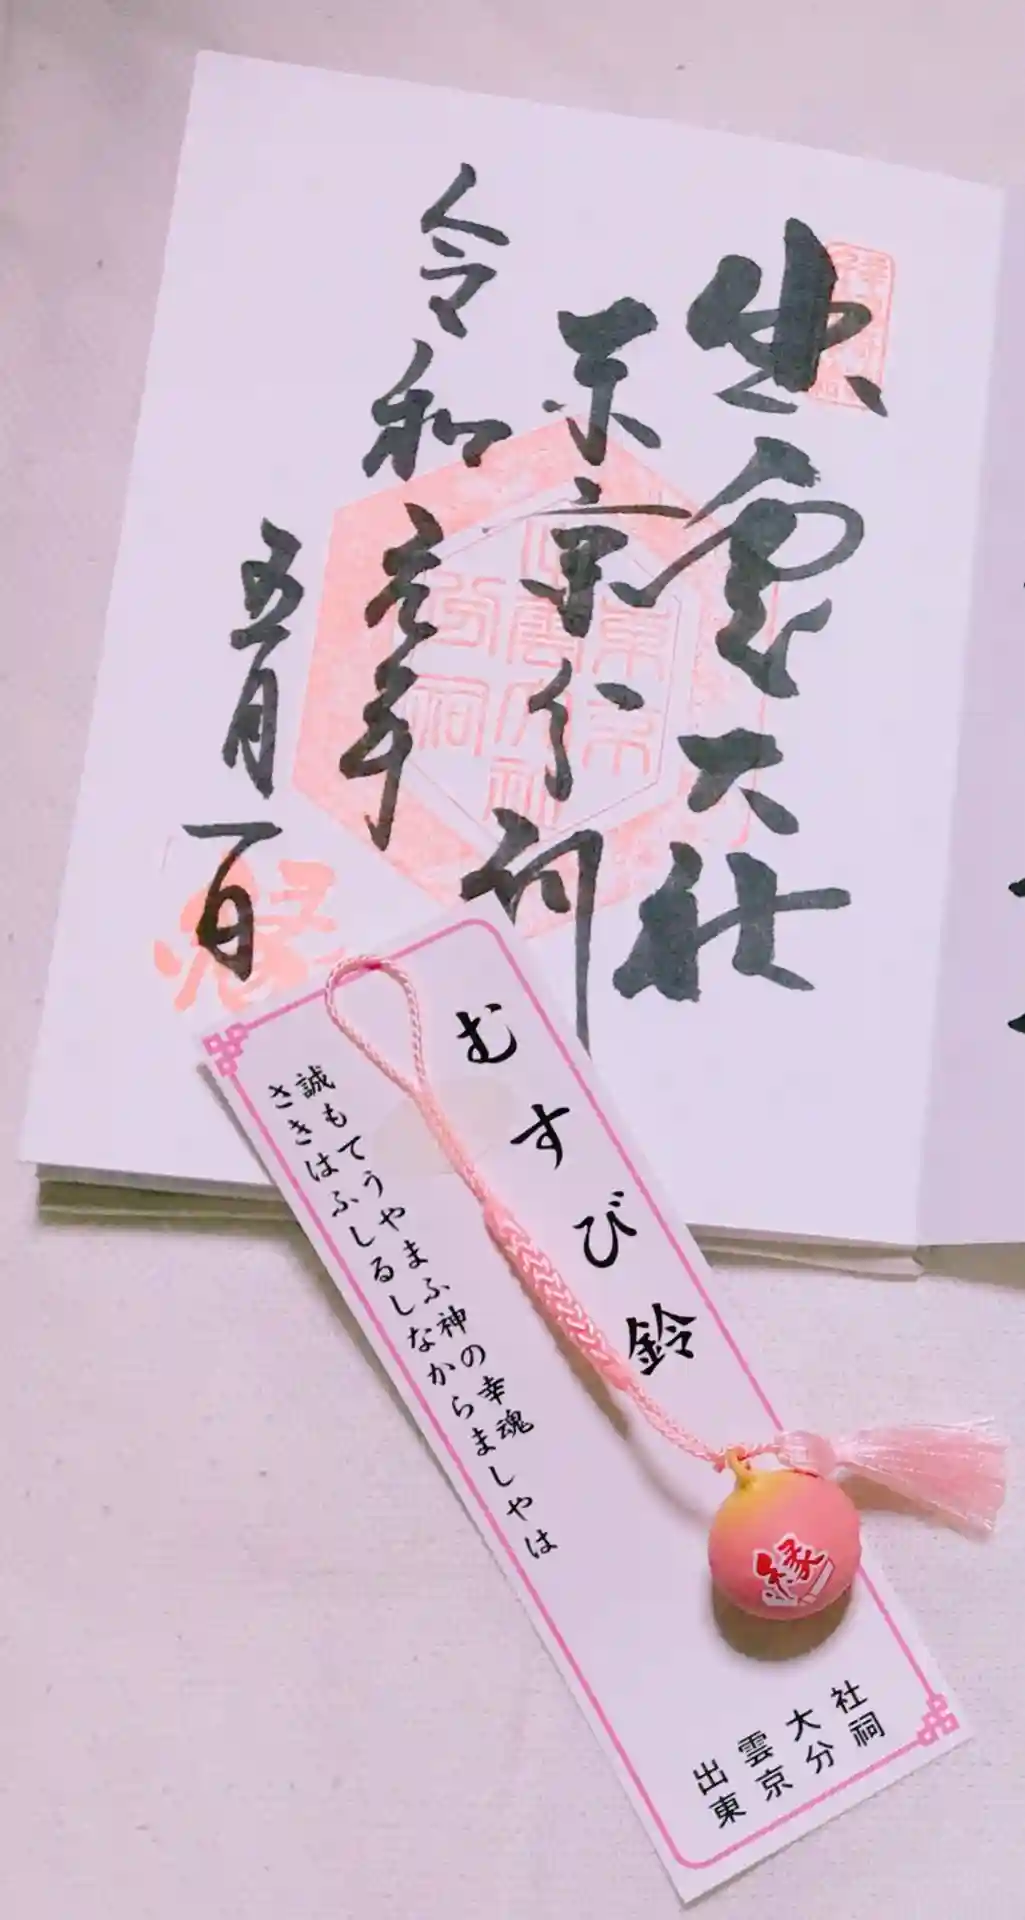 出雲大社
東京分祠
令和元年
五月一日
縁
むすび鈴
誠もてうやまふ神の幸魂ましやは
さきはふしるしなからましやは
縁
出雲大社
東京分祠